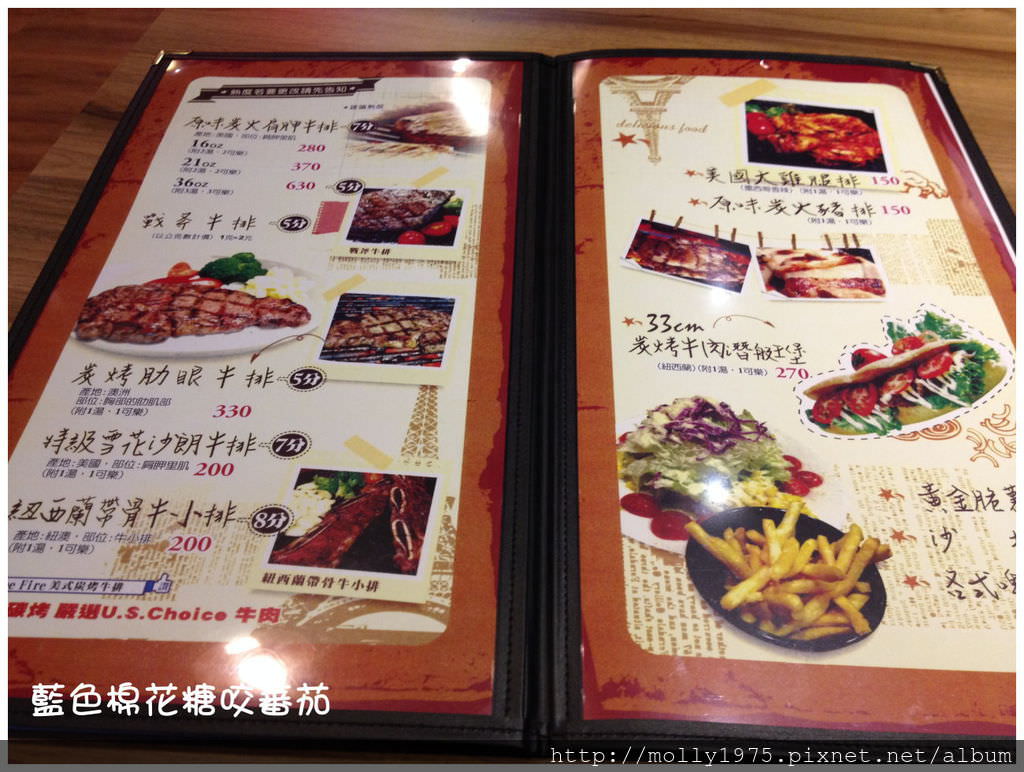 熟度若要更改請先告知
建議熟度
原味炭火肩胛牛排 7分
產地:美國，部位:肩胛里肌
16oz
(附1湯，1可樂) 280
21oz
(附2湯，2可樂) 370
36oz
(附3湯，3可樂) 630 5分
戰斧牛排 5分
(以立克數計價) 1克=2元
戰斧牛排
炭烤肋眼牛排 5分
產地:澳洲
部位:胸部的肋肌部
(附1湯，1可樂) 330
特級雪花沙朗牛排 7分
產地:美國，部位:肩胛里肌
(附1湯，1可樂) 200
紐西蘭帶骨牛小排 8分
產地:紐澳，部位:牛小排
(附1湯，1可樂) 200
紐西蘭帶骨牛小排
Fire 美式炭烤牛排 讚
碳烤 嚴選U.S.Choice 牛肉
delicious food
美國大雞腿排 150
(墨西哥香辣) (附1湯，1可樂)
原味炭火豬排 150
(附1湯，1可樂)
33cm
炭烤牛肉潛艇堡
(紐西蘭)(附1湯，1可樂) 270
黃金脆薯
沙
各式
藍色棉花糖咬蕃茄
http://molly1975.pixnet.net/album